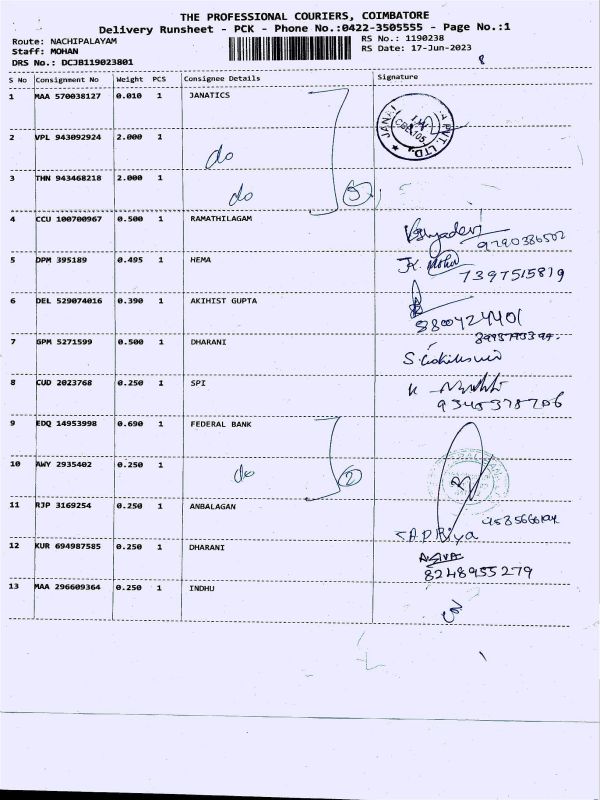 THE PROFESSIONAL COURIERS, COIMBATORE
Delivery Runsheet - PCK - Phone No.:0422-3505555 - Page No.:1
Route: NACHIPALAYAM RS No.: 1190238
Staff: MOHAN RS Date: 17-Jun-2023
DRS No.: DCJB119023801 8
S No Consignment No Weight PCS Consignee Details Signature
1 MAA 570038127 0.010 1 JANATICS
2 VPL 943092924 2.000 1 do
3 THN 943468218 2.000 1 do
4 CCU 100700967 0.500 1 RAMATHILAGAM
9790386502
5 DPM 395189 0.495 1 HEMA
7397515819
6 DEL 529074016 0.390 1 AKIHIST GUPTA
8800424401
7 GPM 5271599 0.500 1 DHARANI
8 CUD 2023768 0.250 1 SPI
9 EDQ 14953998 0.690 1 FEDERAL BANK
10 AWY 2935402 0.250 1 do 2
11 RJP 3169254 0.250 1 ANBALAGAN
12 KUR 694987585 0.250 1 DHARANI
8248955279
13 MAA 296609364 0.250 1 INDHU